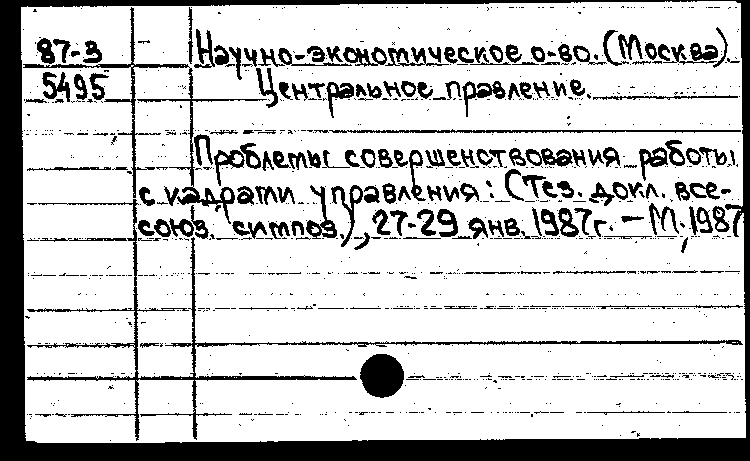 87-3 Научно-экономическое о-во. (Москва)
5495 Центральное правление.
Проблемы совершенствования работы
с кадрами управления: (Тез. докл. все-
союз. симпоз.), 27-29 янв. 1987г. – М., 1987